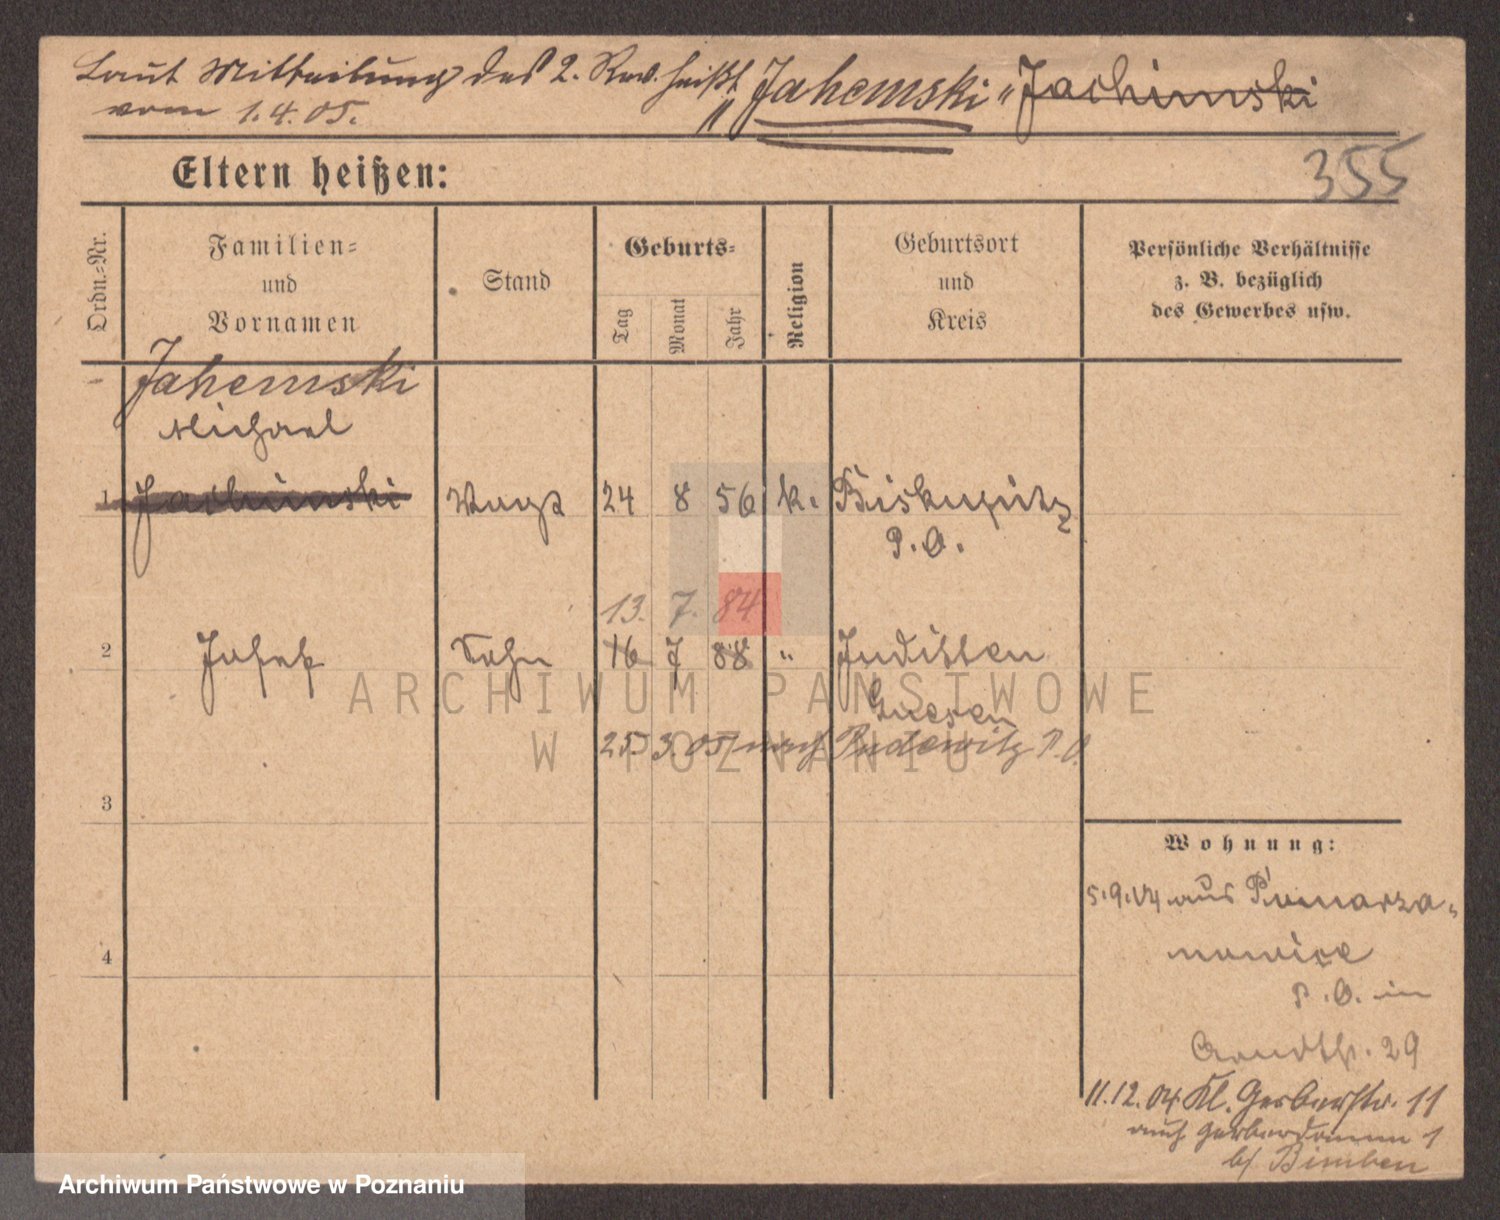 Laut Mitteilung des 2. Rev. heißt „Jahemski“ Jachimski
vom 1.4.05.
355
Eltern heißen:
Ordn.=Nr.
Familien=
und
Vornamen
Stand
Geburts=
Tag
Monat
Jahr
Religion
Geburtsort
und
Kreis
Persönliche Verhältnisse
z. B. bezüglich
des Gewerbes usw.
Jahemski
Michael
1 Jachimski 24 8 56 k. Biskupitz
P. O.
13. 7. 84
2 Josef Sohn 16 7 88 " Juditten
Gnesen
25 3. 05 nach Pudewitz P. O.
3
4
Wohnung:
5.9.04 aus
P. O. in
29
11.12.04 Kl. Gerberstr. 11
auch Gerberdamm 1
b/ Bimben
ARCHIWUM PAŃSTWOWE
W POZNANIU
Archiwum Państwowe w Poznaniu